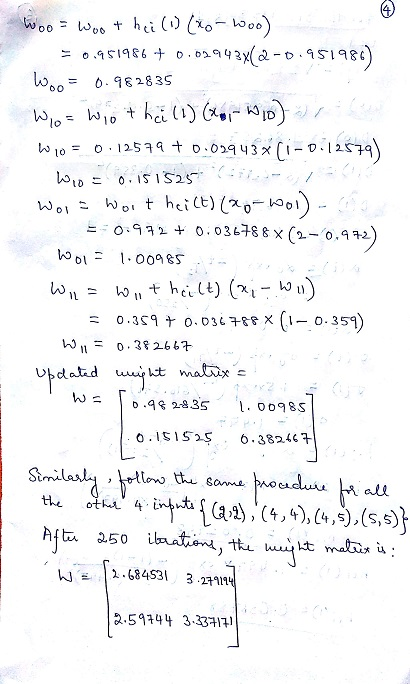 ④
W₀₀ = W₀₀ + hci(1) (x₀ - W₀₀)
= 0.951986 + 0.02943×(2-0.951986)
W₀₀ = 0.982835
W₁₀ = W₁₀ + hci(1) (x₁ - W₁₀)
W₁₀ = 0.12579 + 0.02943×(1-0.12579)
W₁₀ = 0.151525
W₀₁ = W₀₁ + hci(t) (x₀ - W₀₁)
= 0.972 + 0.036788×(2-0.972)
W₀₁ = 1.00985
W₁₁ = W₁₁ + hci(t) (x₁ - W₁₁)
= 0.359 + 0.036788×(1-0.359)
W₁₁ = 0.382667
Updated weight matrix =
W = [0.982835 1.00985]
[0.151525 0.382667]
Similarly, follow the same procedure for all
the other 4 inputs {(2,2), (4,4), (4,5), (5,5)}
After 250 iterations, the weight matrix is:
W = [2.684531 3.279194]
[2.59744 3.337171]